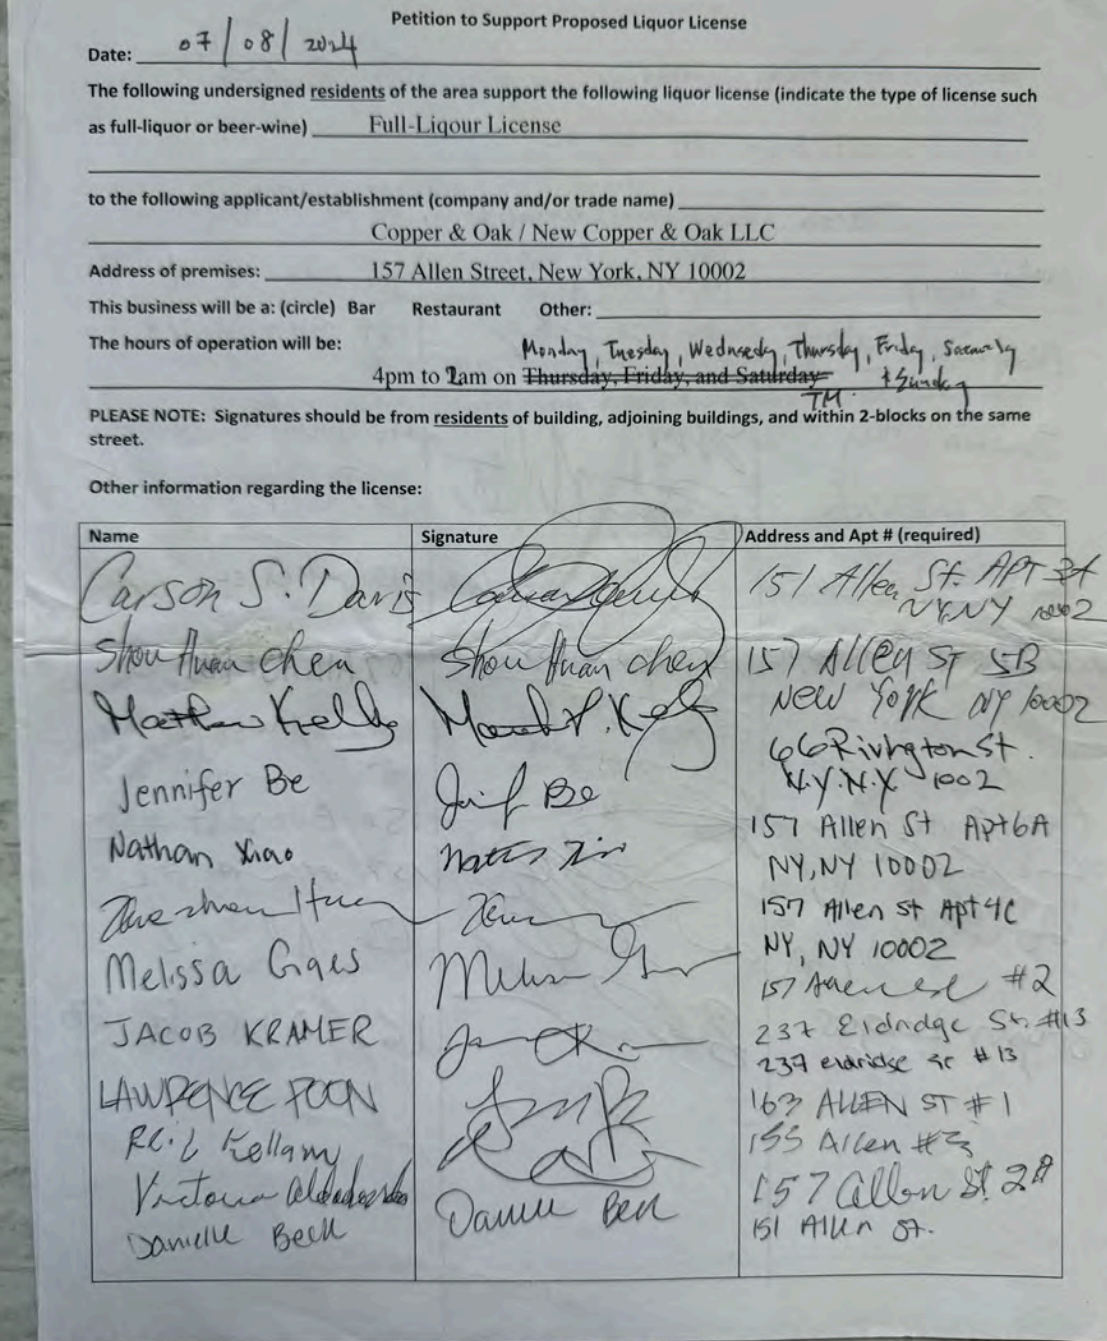 Petition to Support Proposed Liquor License
Date: 07/08/2024
The following undersigned residents of the area support the following liquor license (indicate the type of license such
as full-liquor or beer-wine) Full-Liqour License
to the following applicant/establishment (company and/or trade name)
Copper & Oak / New Copper & Oak LLC
Address of premises: 157 Allen Street, New York, NY 10002
This business will be a: (circle) Bar Restaurant Other:
The hours of operation will be: Monday, Tuesday, Wednesday, Thursday, Friday,
4pm to 2am on Thursday, Friday, and Saturday & Sunday
TM
PLEASE NOTE: Signatures should be from residents of building, adjoining buildings, and within 2-blocks on the same
street.
Other information regarding the license:
Name Signature Address and Apt # (required)
Carson S. Davis 151 Allen St. APT
NY, NY 10002
Shou Huan Chen Shou Huan chen 157 Allen ST 5B
New York NY 10002
Matthew Kelly 66 Rivington St.
N.Y.N.Y 1002
Jennifer Be Be
157 Allen St Apt 6A
Nathan Xiao
NY, NY 10002
157 Allen St Apt 4C
NY, NY 10002
Melissa
157 #2
JACOB KRAMER 237 Eldridge St. #13
237 eldridge st #13
LAWRENCE POON 163 ALLEN ST #1
Kellamy 155 Allen #3
Victoria 157 Allen St.
Danielle Beck 151 Allen St.